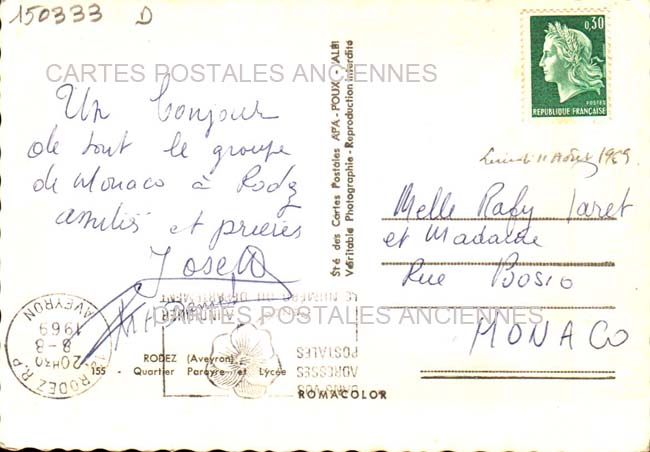 150333 D
0,30
POSTES
REPUBLIQUE FRANÇAISE
CARTES POSTALES ANCIENNES
Un bonjour
de tout le groupe
de Monaco à Rodez
amitiés et prières
Joseph
Sté des Cartes Postales APA-POUX - ALBI
Véritable Photographie - Reproduction interdite
Lundi 11 Août 1969
Melle Raby
et Madame
Rue Bosio
MONACO
CARTES POSTALES ANCIENNES
RODEZ R.P.
AVEYRON
20H30
8-8
1969
DANS VOS
ADRESSES
POSTALES
INDIQUER
LE NUMERO DU DEPARTEMENT
RODEZ (Aveyron)
155 - Quartier Parayre et Lycée
ROMACOLOR